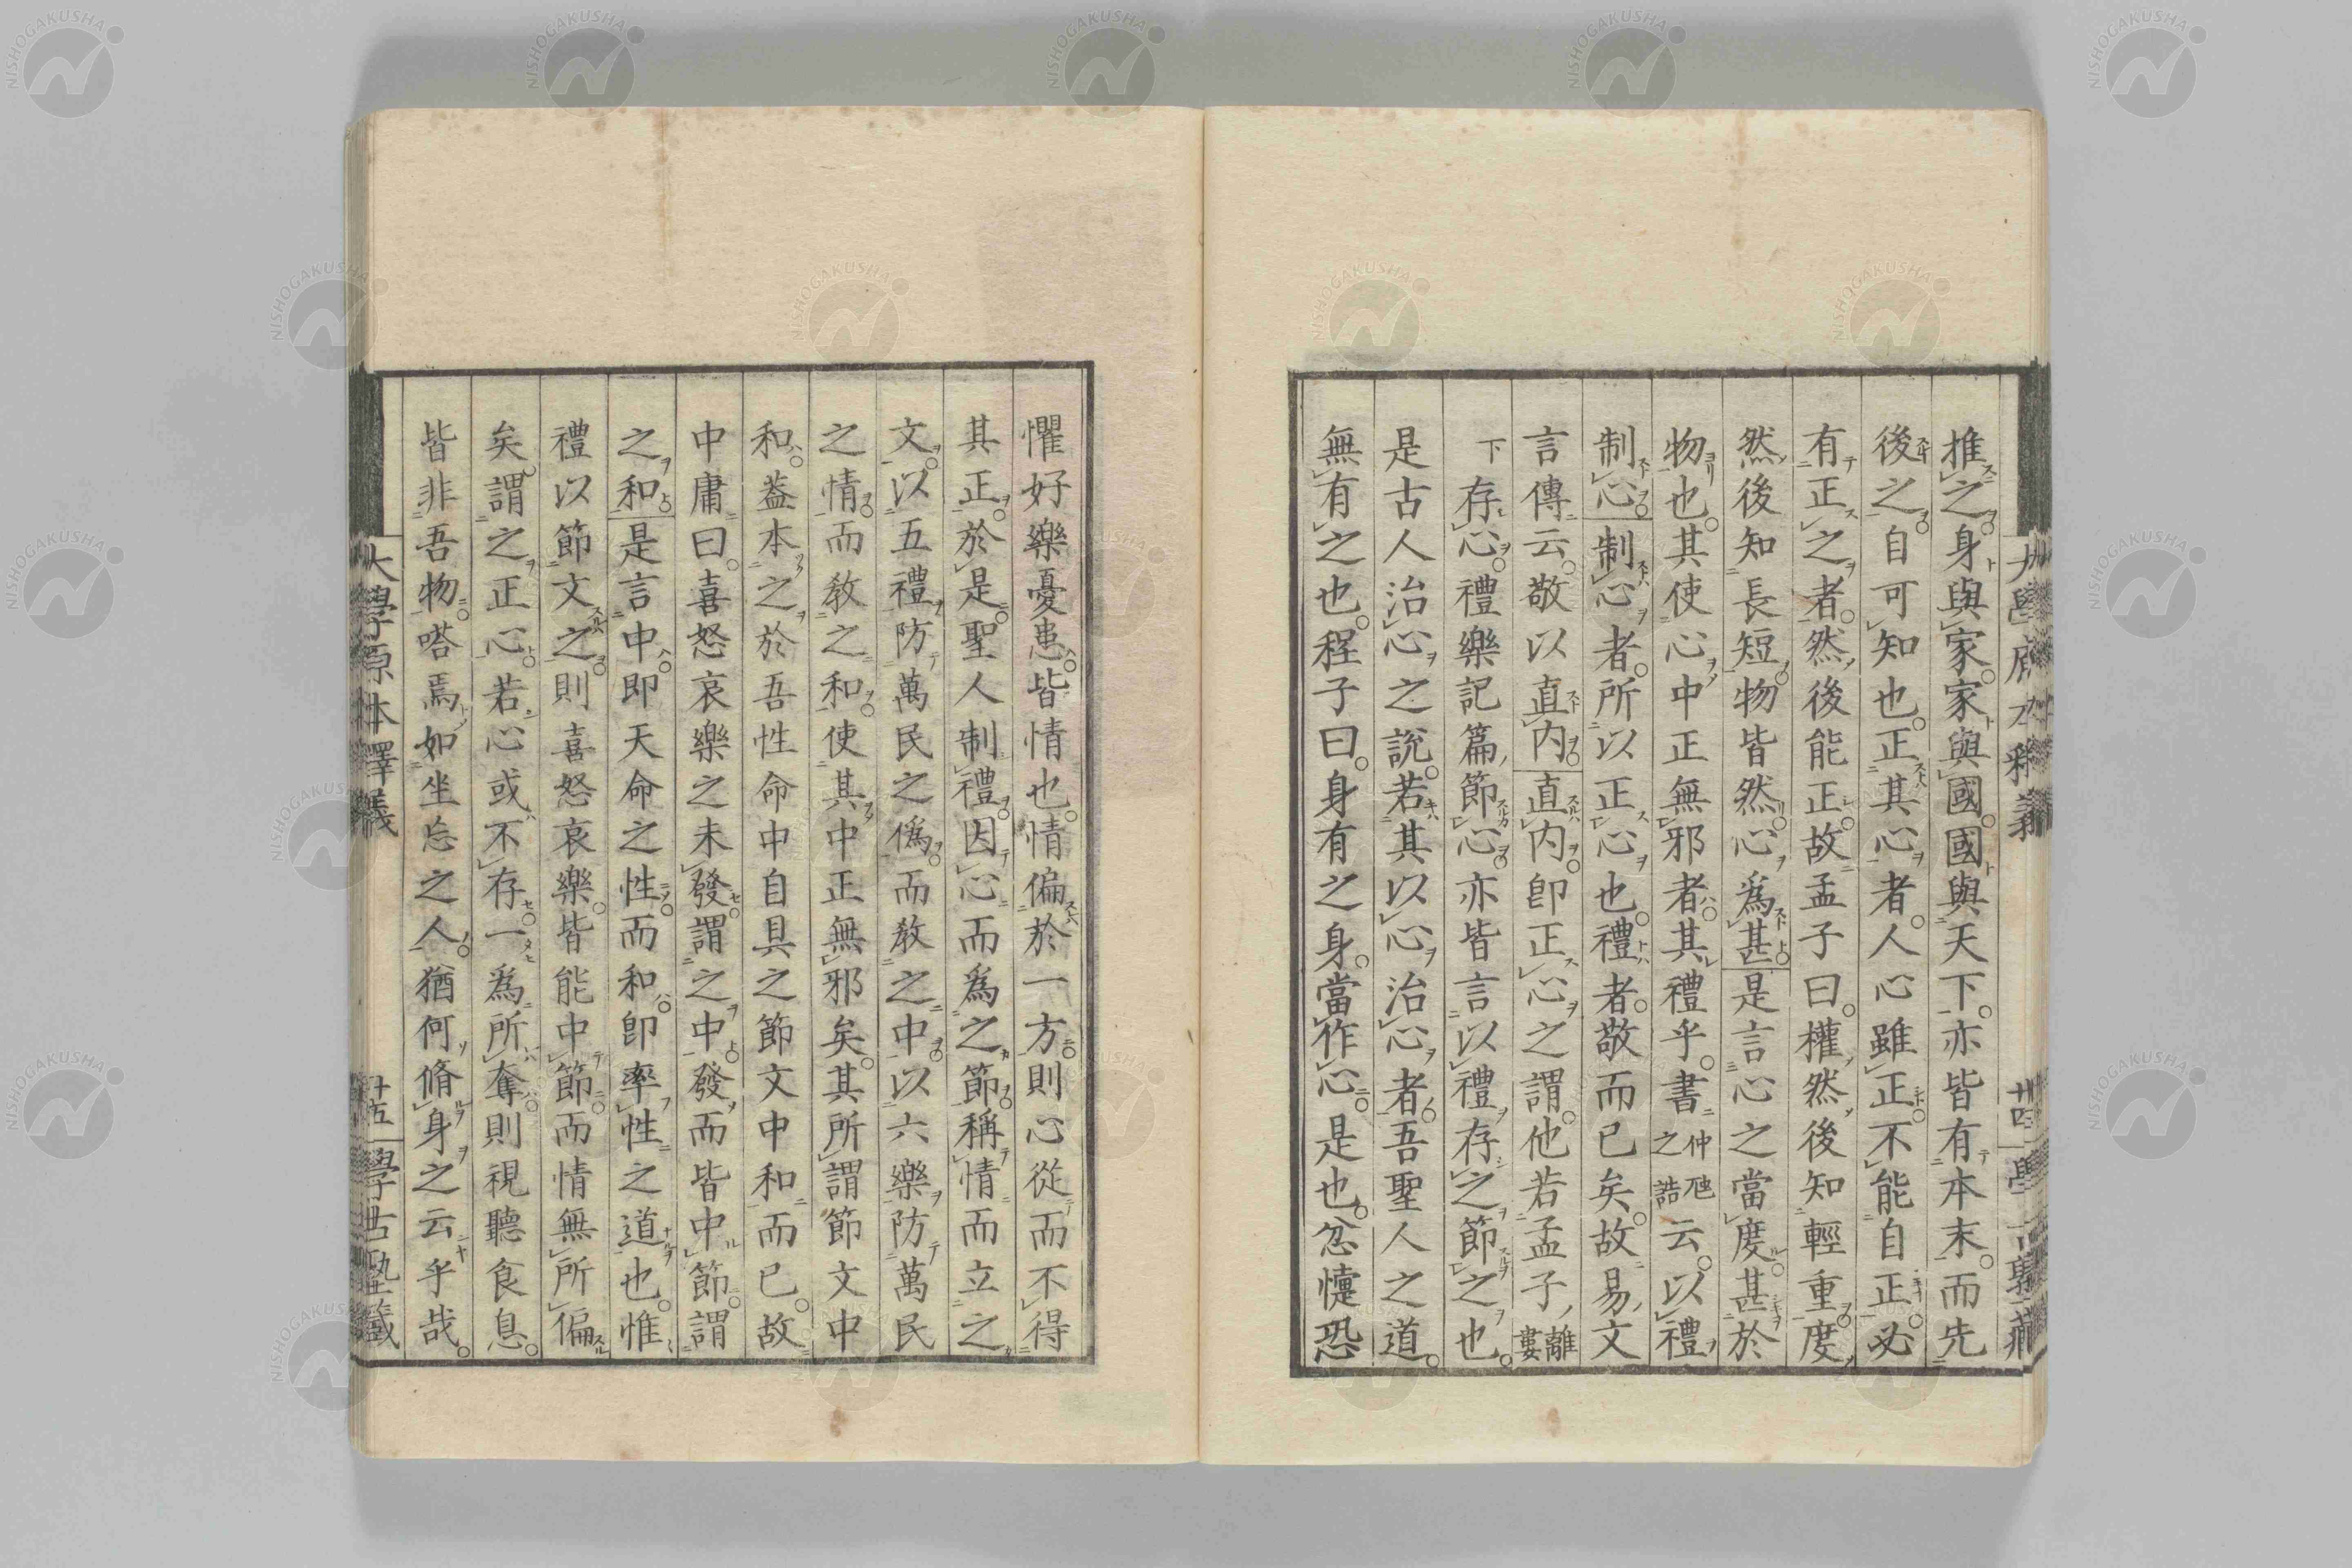 推之身與家家與國國與天下亦皆有本末而先
後之自可知也正其心者人心雖正不能自正必
有正之者然後能正故孟子曰權然後知輕重度
然後知長短物皆然心爲甚是言心之當度甚於
物也其使心中正無邪者其禮乎書仲虺之誥云以禮
制心制心者所以正心也禮者敬而已矣故易文
言傳云敬以直内直内卽正心之謂他若孟子離婁
下存心禮樂記篇節心亦皆言以禮存之節之也
是古人治心之說若其以心治心者吾聖人之道
無有之也程子曰身有之身當作心是也忿懥恐
懼好樂憂患皆情也情偏於一方則心從而不得
其正於是聖人制禮因心而爲之節稱情而立之
文以五禮防萬民之僞而敎之中以六樂防萬民
之情而敎之和使其中正無邪矣其所謂節文中
和蓋本之於吾性命中自具之節文中和而已故
中庸曰喜怒哀樂之未發謂之中發而皆中節謂
之和是言中卽天命之性而和卽率性之道也惟
禮以節文之則喜怒哀樂皆能中節而情無所偏
矣謂之正心若心或不存一爲所奪則視聽食息
皆非吾物嗒焉如坐忘之人猶何脩身之云乎哉
大學原本釋義 十五 學古塾藏